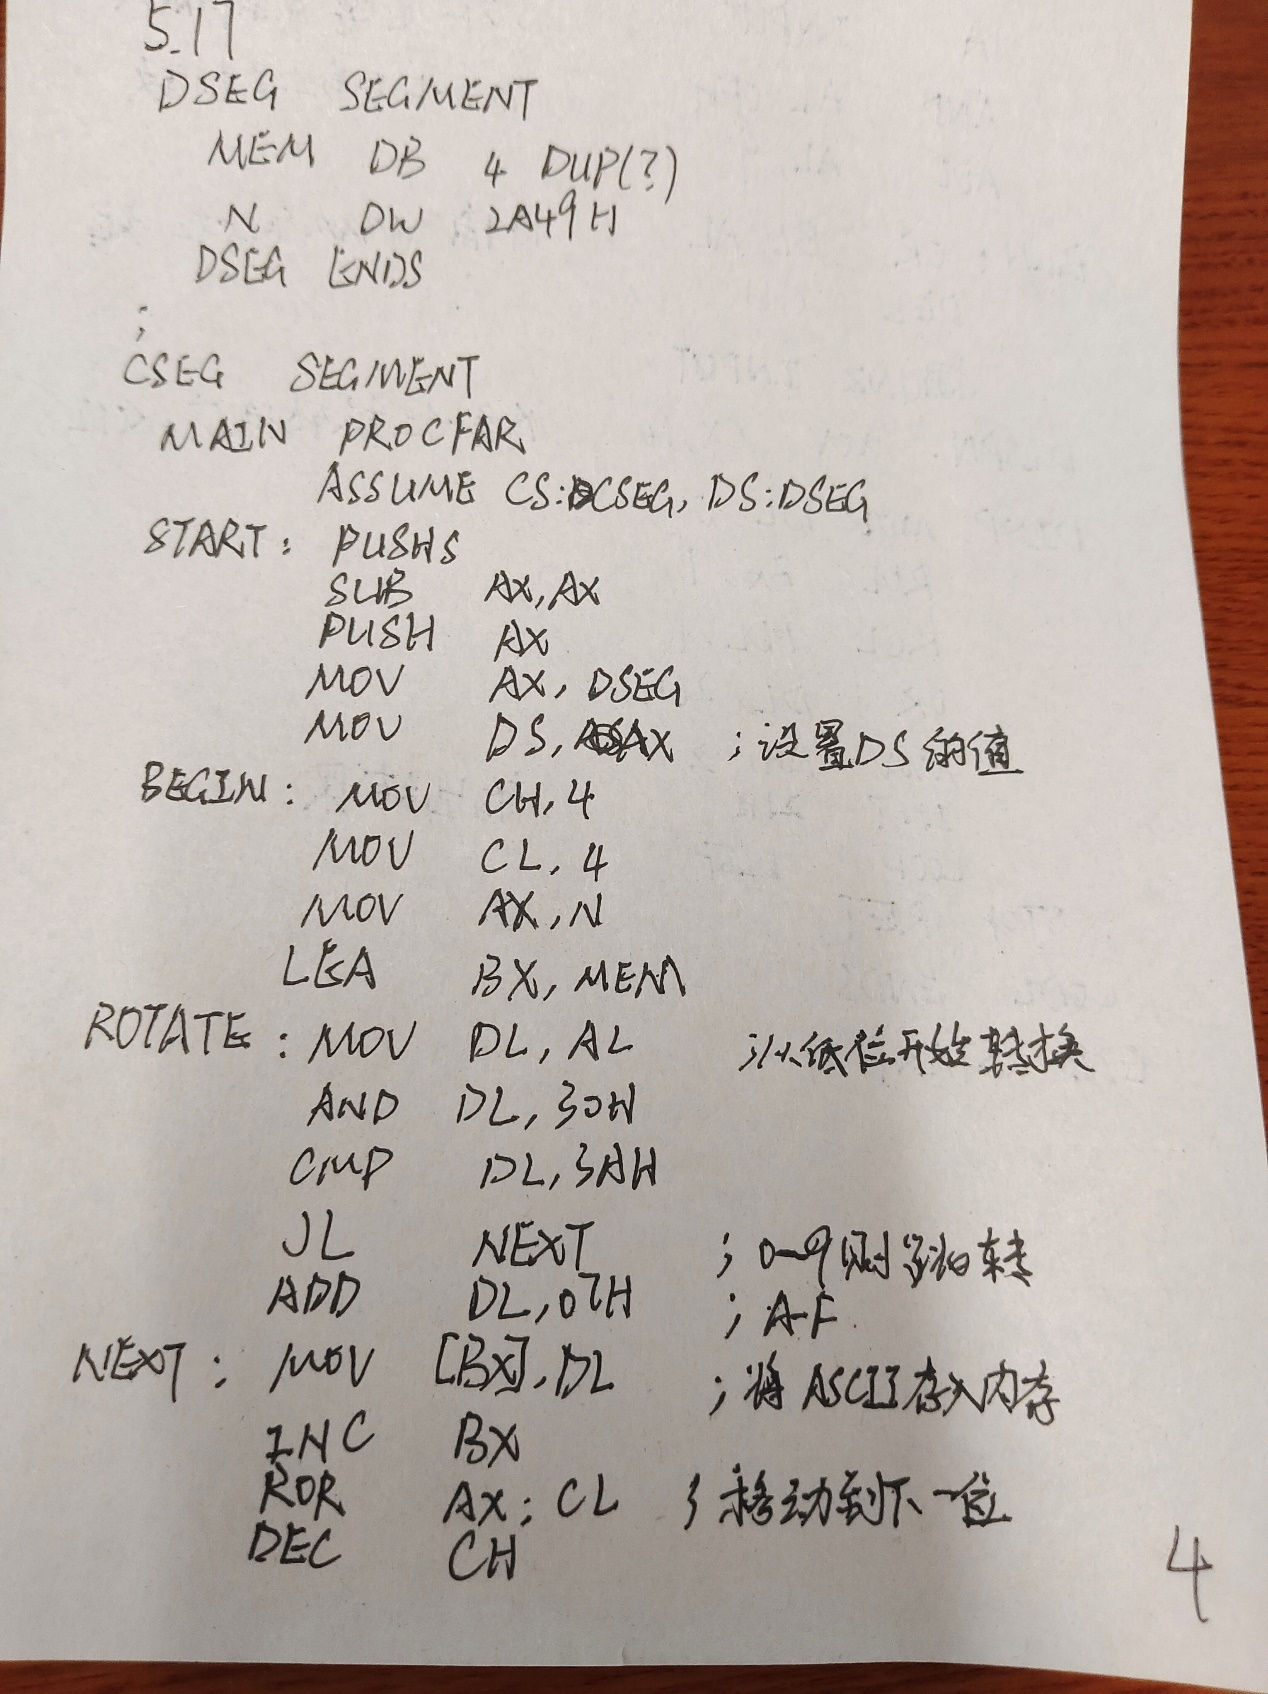 5.17
DSEG SEGMENT
MEM DB 4 DUP(?)
N DW 2A49H
DSEG ENDS
;
CSEG SEGMENT
MAIN PROC FAR
ASSUME CS:CSEG, DS:DSEG
START: PUSHS
SUB AX,AX
PUSH AX
MOV AX, DSEG
MOV DS,AX ;设置DS的值
BEGIN: MOV CH,4
MOV CL,4
MOV AX,N
LEA BX, MEM
ROTATE: MOV DL, AL ;从低位开始转换
AND DL, 30H
CMP DL,3AH
JL NEXT ;0-9则 转
ADD DL,07H ;A-F
NEXT: MOV [BX],DL ;将ASCII存入内存
INC BX
ROR AX; CL ;移动到下一位
DEC CH
4